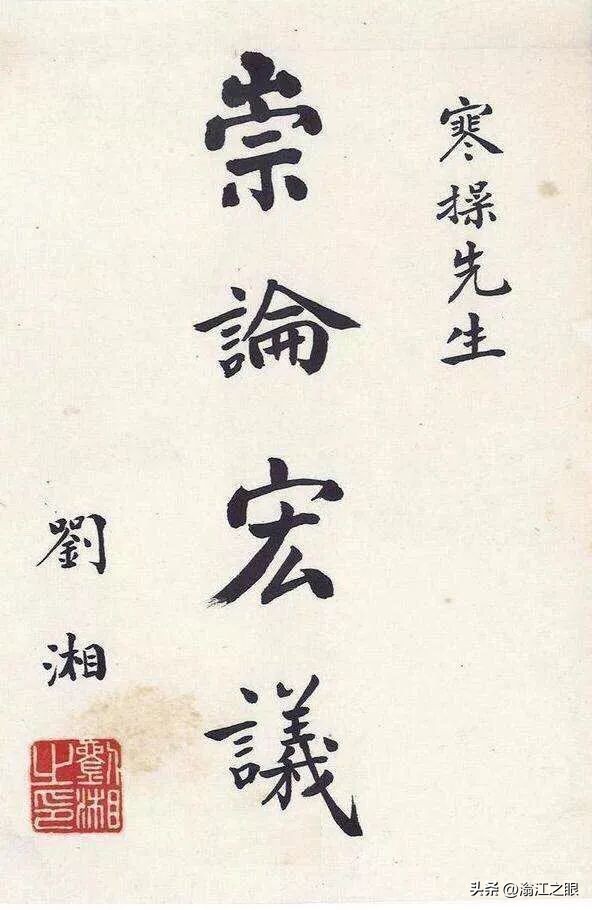 寒操先生
崇論宏議
劉湘
劉湘之印
头条 @滃江之眼